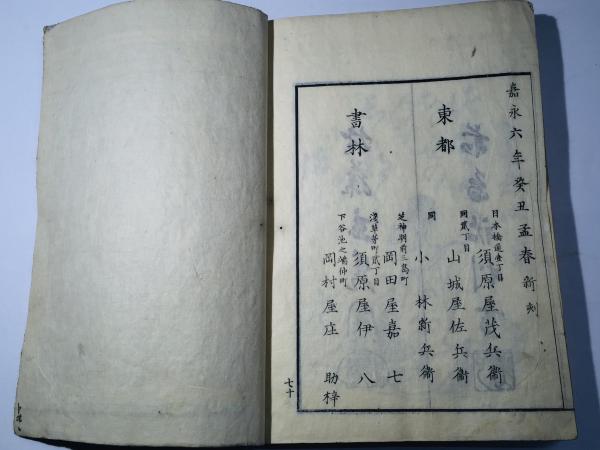 嘉永六年癸丑孟春新刻
東都
書林
日本橋通壹丁目
須原屋茂兵衞
同貳丁目
山城屋佐兵衞
同
小林新兵衞
芝神明前三島町
岡田屋嘉七
淺草茅町貳丁目
須原屋伊八
下谷池之端仲町
岡村屋庄助梓
七十